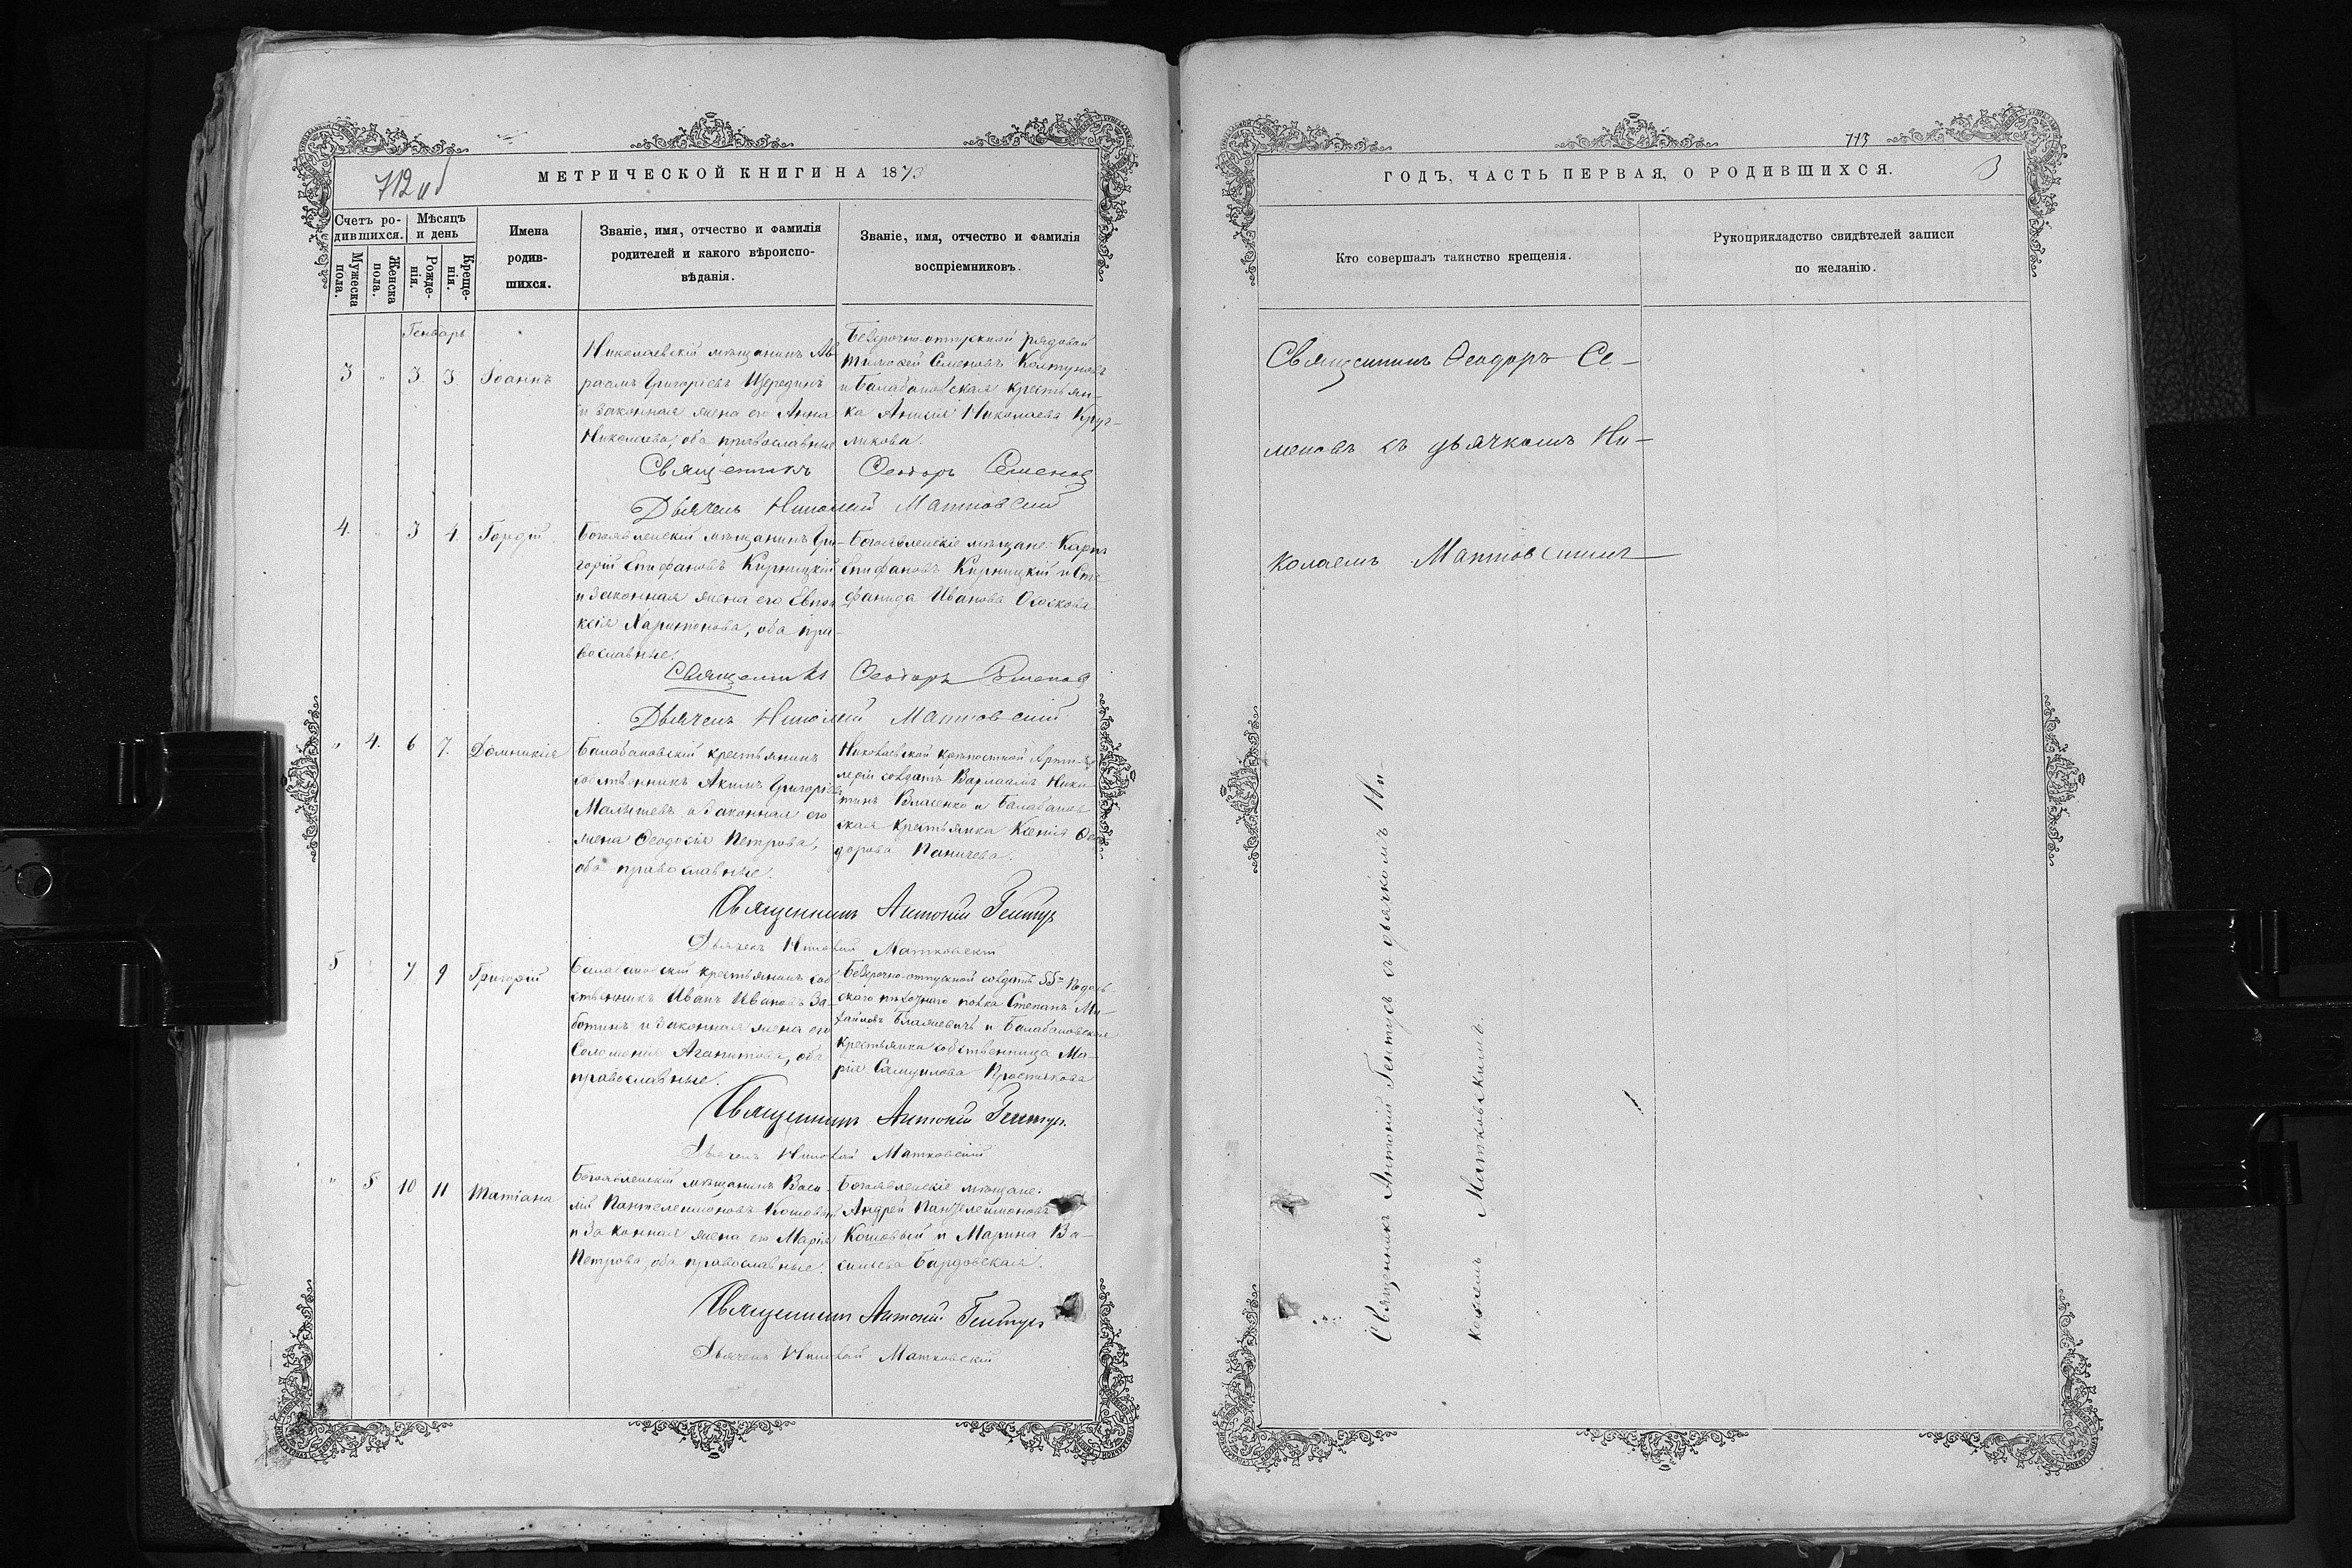 МЕТРИЧЕСКОЙ КНИГИ НА 1873
712 об
Счетъ ро-
дившихся.
Мужеска
пола.
Женска
пола.
Мѣсяцъ
и день
Рожде-
нія.
Креще-
нія.
Имена
родив-
шихся.
Званіе, имя, отчество и фамилія
родителей и какого вѣроиспо-
вѣданія.
Званіе, имя, отчество и фамилія
воспріемниковъ.
Генварь
3 " 3. 3. Іоаннъ
Николаевскій мѣщанинъ Ав
раамъ Григоріевъ Щерединъ
и законная жена его Анна
Николаева, оба православные
Безсрочно-отпускной рядовой
Тимоѳей Семеновъ Колтуновъ
и Балабановская крестьян-
ка Анисія Николаева Круг-
ликова.
Священникъ Ѳеодоръ Семенов
Дьячекъ Николай Матковский
4. " 3 4. Гордій.
Богоявленскій мѣщанинъ Гри-
горій Епифановъ Кирницкій
и законная жена его Евпра
ксія Харитонова, оба пра-
вославные.
Богоявленскіе мѣщане: Карпъ
Епифановъ Кирницкій и Сте-
фанида Иванова Ососкова
Священникъ Ѳеодоръ Семенов
Дьячекъ Николай Матковский
" 4. 6 7. Домникія
Балабановскій крестьянинъ
собственникъ Акимъ Григоріевъ
Малышевъ и законная его
жена Ѳеодосія Петрова,
оба православные.
Николаевской крѣпостной Арти-
леріи солдатъ Варлаамъ Ники
тинъ Власенко и Балабанов
ская крестьянка Ксенія Ѳео
дорова Паничева.
Священникъ Антоній Гентуъ
Дьячекъ Николай Матковскій
5 " 7 9 Григорій
Балабановскій крестьянинъ соб
ственникъ Иванъ Ивановъ За-
ботинъ и законная жена его
Соломонія Агапитова, оба
православные.
Безсрочно-отпускной солдатъ 55го Подоль-
скаго пѣхотнаго полка Степанъ Ми-
хайловъ Блажевичъ и Балабановская
крестьянка собственница Ма-
рія Самуилова Простякова
Священникъ Антоній Гентуъ.
Дьячекъ Николай Матковскій
" 5 10 11 Татіана
Богоявленскій мѣщанинъ Васи-
лій Пантелеимоновъ Кошовый
и законная жена его Марія
Петрова, оба православные.
Богоявленскіе мѣщане:
Андрей Пантелеимоновъ
Кошовый и Марина Ва-
сильева Бардовская.
Священникъ Антоній Гентуъ
Дьячекъ Николай Матковскій
713
ГОДЪ, ЧАСТЬ ПЕРВАЯ, О РОДИВШИХСЯ.
3
Кто совершалъ таинство крещенія.
Рукоприкладство свидѣтелей записи
по желанію.
Священникъ Ѳеодоръ Се-
меновъ съ дьячкомъ Ни-
колаемъ Матковскимъ
Священникъ Антоній Гентуъ съ дьячкомъ Ни-
колаемъ Матковскимъ.